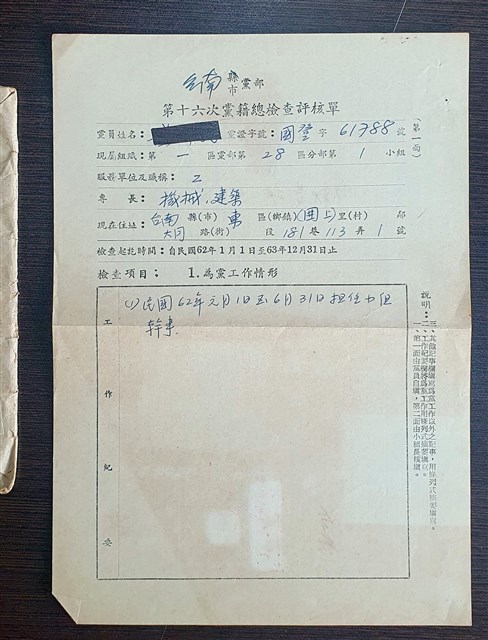 台南 縣市 黨部
第十六次黨籍總檢查評核單
(第一面)
黨員姓名： 黨證字號：國登字 61788 號
現屬組織：第一區黨部第28區分部第1小組
服務單位及職稱：
專長：機械，建築
現在住址：台南縣(市)東區(鄉鎮)圍上里(村)鄰
大同路(街)段181巷113弄1號
檢查起訖時間：自民國62年1月1日至63年12月31日止
檢查項目：1.為黨工作情形
工作紀要
(1)民國62年元月1日至6月31日担任小組
幹事
說明：
一、第一面由黨員自填，第二面由小組長核填。
二、工作紀要欄將為黨工作用條列式摘要填寫。
三、其他記事欄填寫為黨工作以外之記事，用條列式摘要填寫。